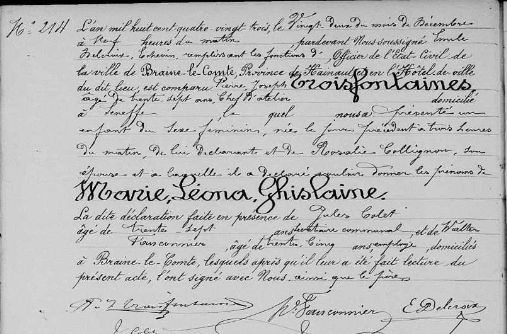 N° 214 L'an mil huit cent quatre-vingt trois, le Vingt deux du mois de Décembre
à neuf heures du matin pardevant Nous soussigné Emile
Delcroix, Echevin, remplissant les fonctions d'Officier de l'Etat-Civil de
la ville de Braine-le-Comte, Province de Hainaut, en l'Hôtel de ville
du dit lieu, est comparu Pierre Joseph Troisfontaines
âgé de trente sept ans Chef d'atelier domicilié
à Seneffe, la quel nous a présenté un
enfant du sexe féminin, née le jour précédent à trois heures
du matin, de lui déclarant et de Rosalie Collignon, son
épouse et à laquelle il a déclaré vouloir donner les prénoms de
Marie, Léona, Ghislaine.
La dite déclaration faite en présence de Jules Colet
âgé de trente sept ans secrétaire communal et de Walter
Poisconnier, âgé de trente cinq ans employé domiciliés
à Braine-le-Comte, lesquels après qu'il leur a été fait lecture du
présent acte, l'ont signé avec Nous, ainsi que le père
Troisfontaines Poisconnier E Delcroix